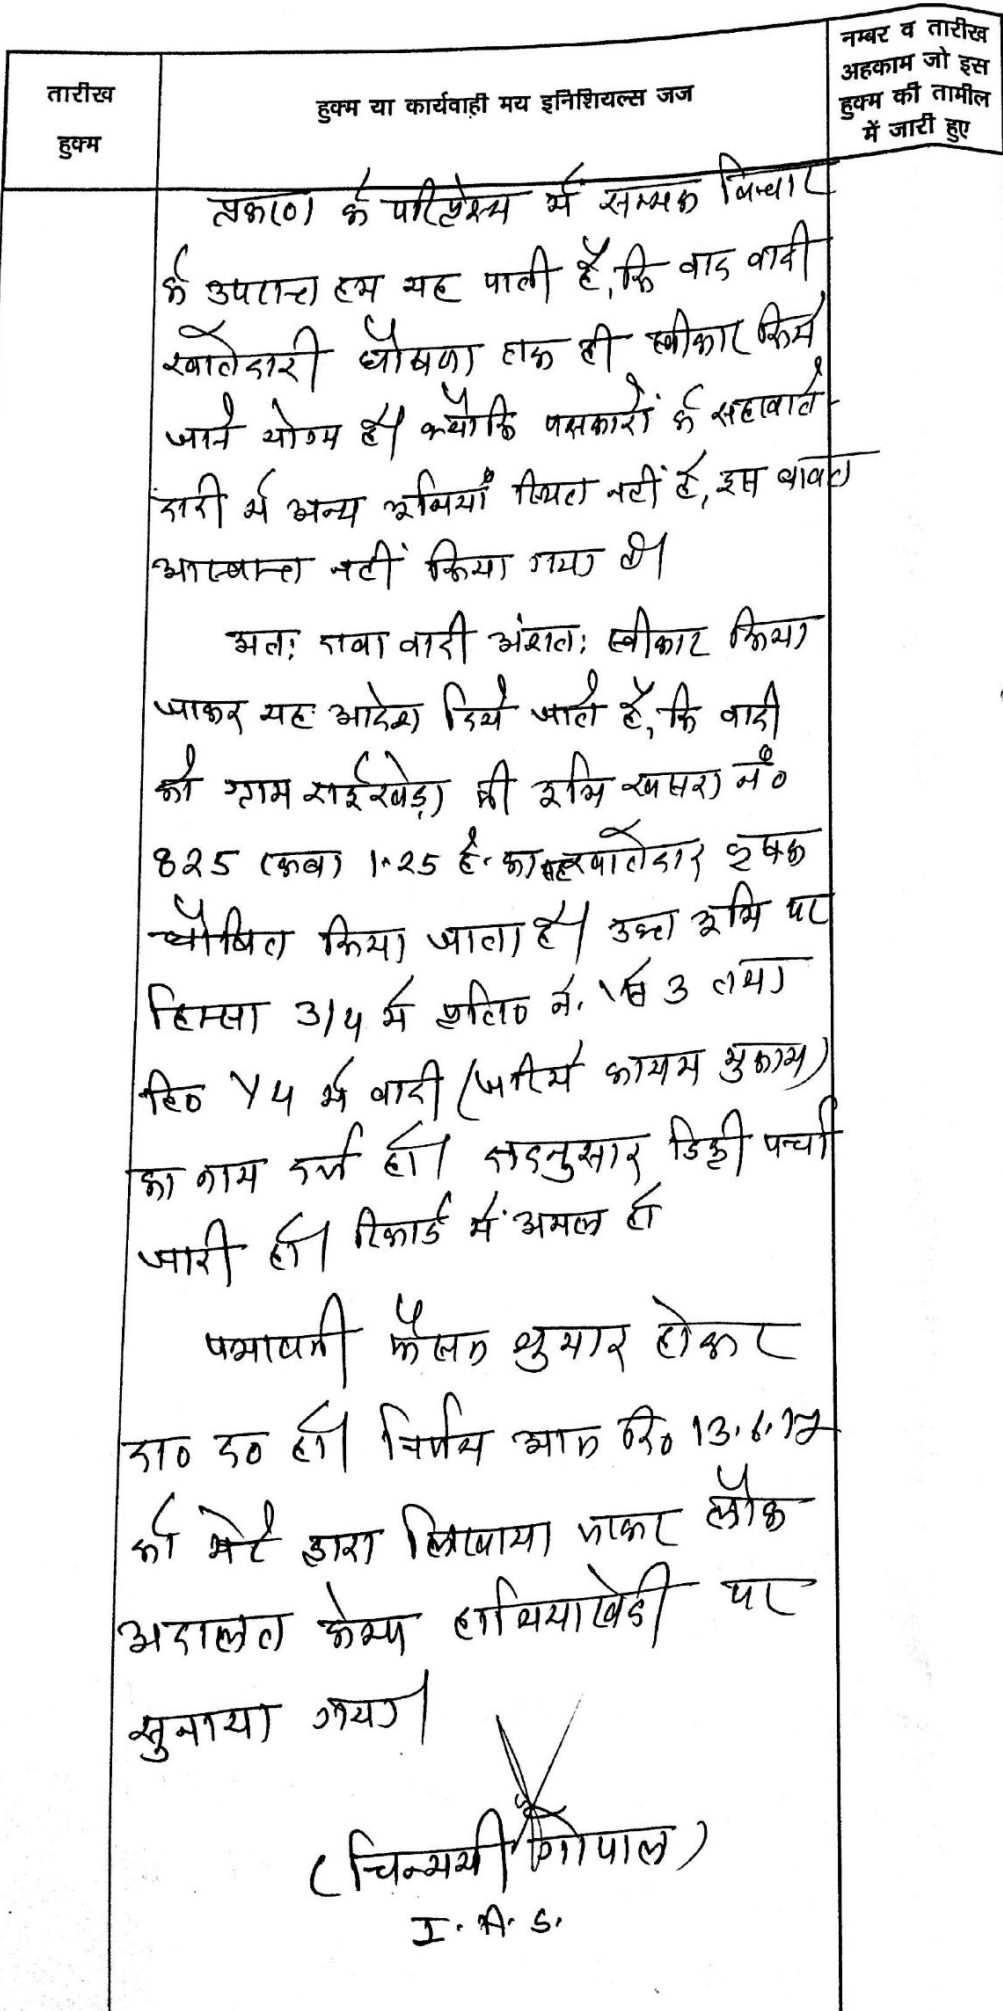 तारीख
हुक्म
हुक्म या कार्यवाही मय इनिशियल्स जज
नम्बर व तारीख
अहकाम जो इस
हुक्म की तामील
में जारी हुए
प्रकरण के परिप्रेक्ष्य में सम्यक विचार
के उपरान्त हम यह पाती हैं, कि वाद वादी
खातेदारी घोषणा तक ही स्वीकार किये
जाने योग्य है। क्योंकि पक्षकारों के सहखाते-
दारी में अन्य भूमियाँ स्थित नहीं है, इस बाबत
आश्वस्त नहीं किया गया है।
अतः दावा वादी अंशतः स्वीकार किया
जाकर यह आदेश दिये जाते हैं, कि वादी
को ग्राम राईखेड़ा की भूमि खसरा नं०
825 रकबा 1.25 है. का सहखातेदार कृषक
घोषित किया जाता है। उक्त भूमि पर
हिस्सा 3/4 में प्रति० नं. 1 से 3 तथा
हि० 1/4 में वादी (जरिये कायम मुकाम)
का नाम दर्ज हो। तदनुसार डिक्री पर्चा
जारी हो। रिकार्ड में अमल हो
पत्रावली फैसल शुमार होकर
दा० द० हो। निर्णय आज दि० 13.6.17
को मेरे द्वारा लिखाया जाकर लोक
अदालत केम्प हाथियाखेडी पर
सुनाया गया।
(चिन्मयी गोपाल)
I. A. S.